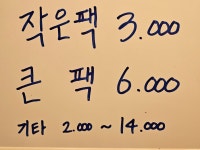 작은팩 3.000
큰 팩 6.000
기타 2.000 ~ 14.000